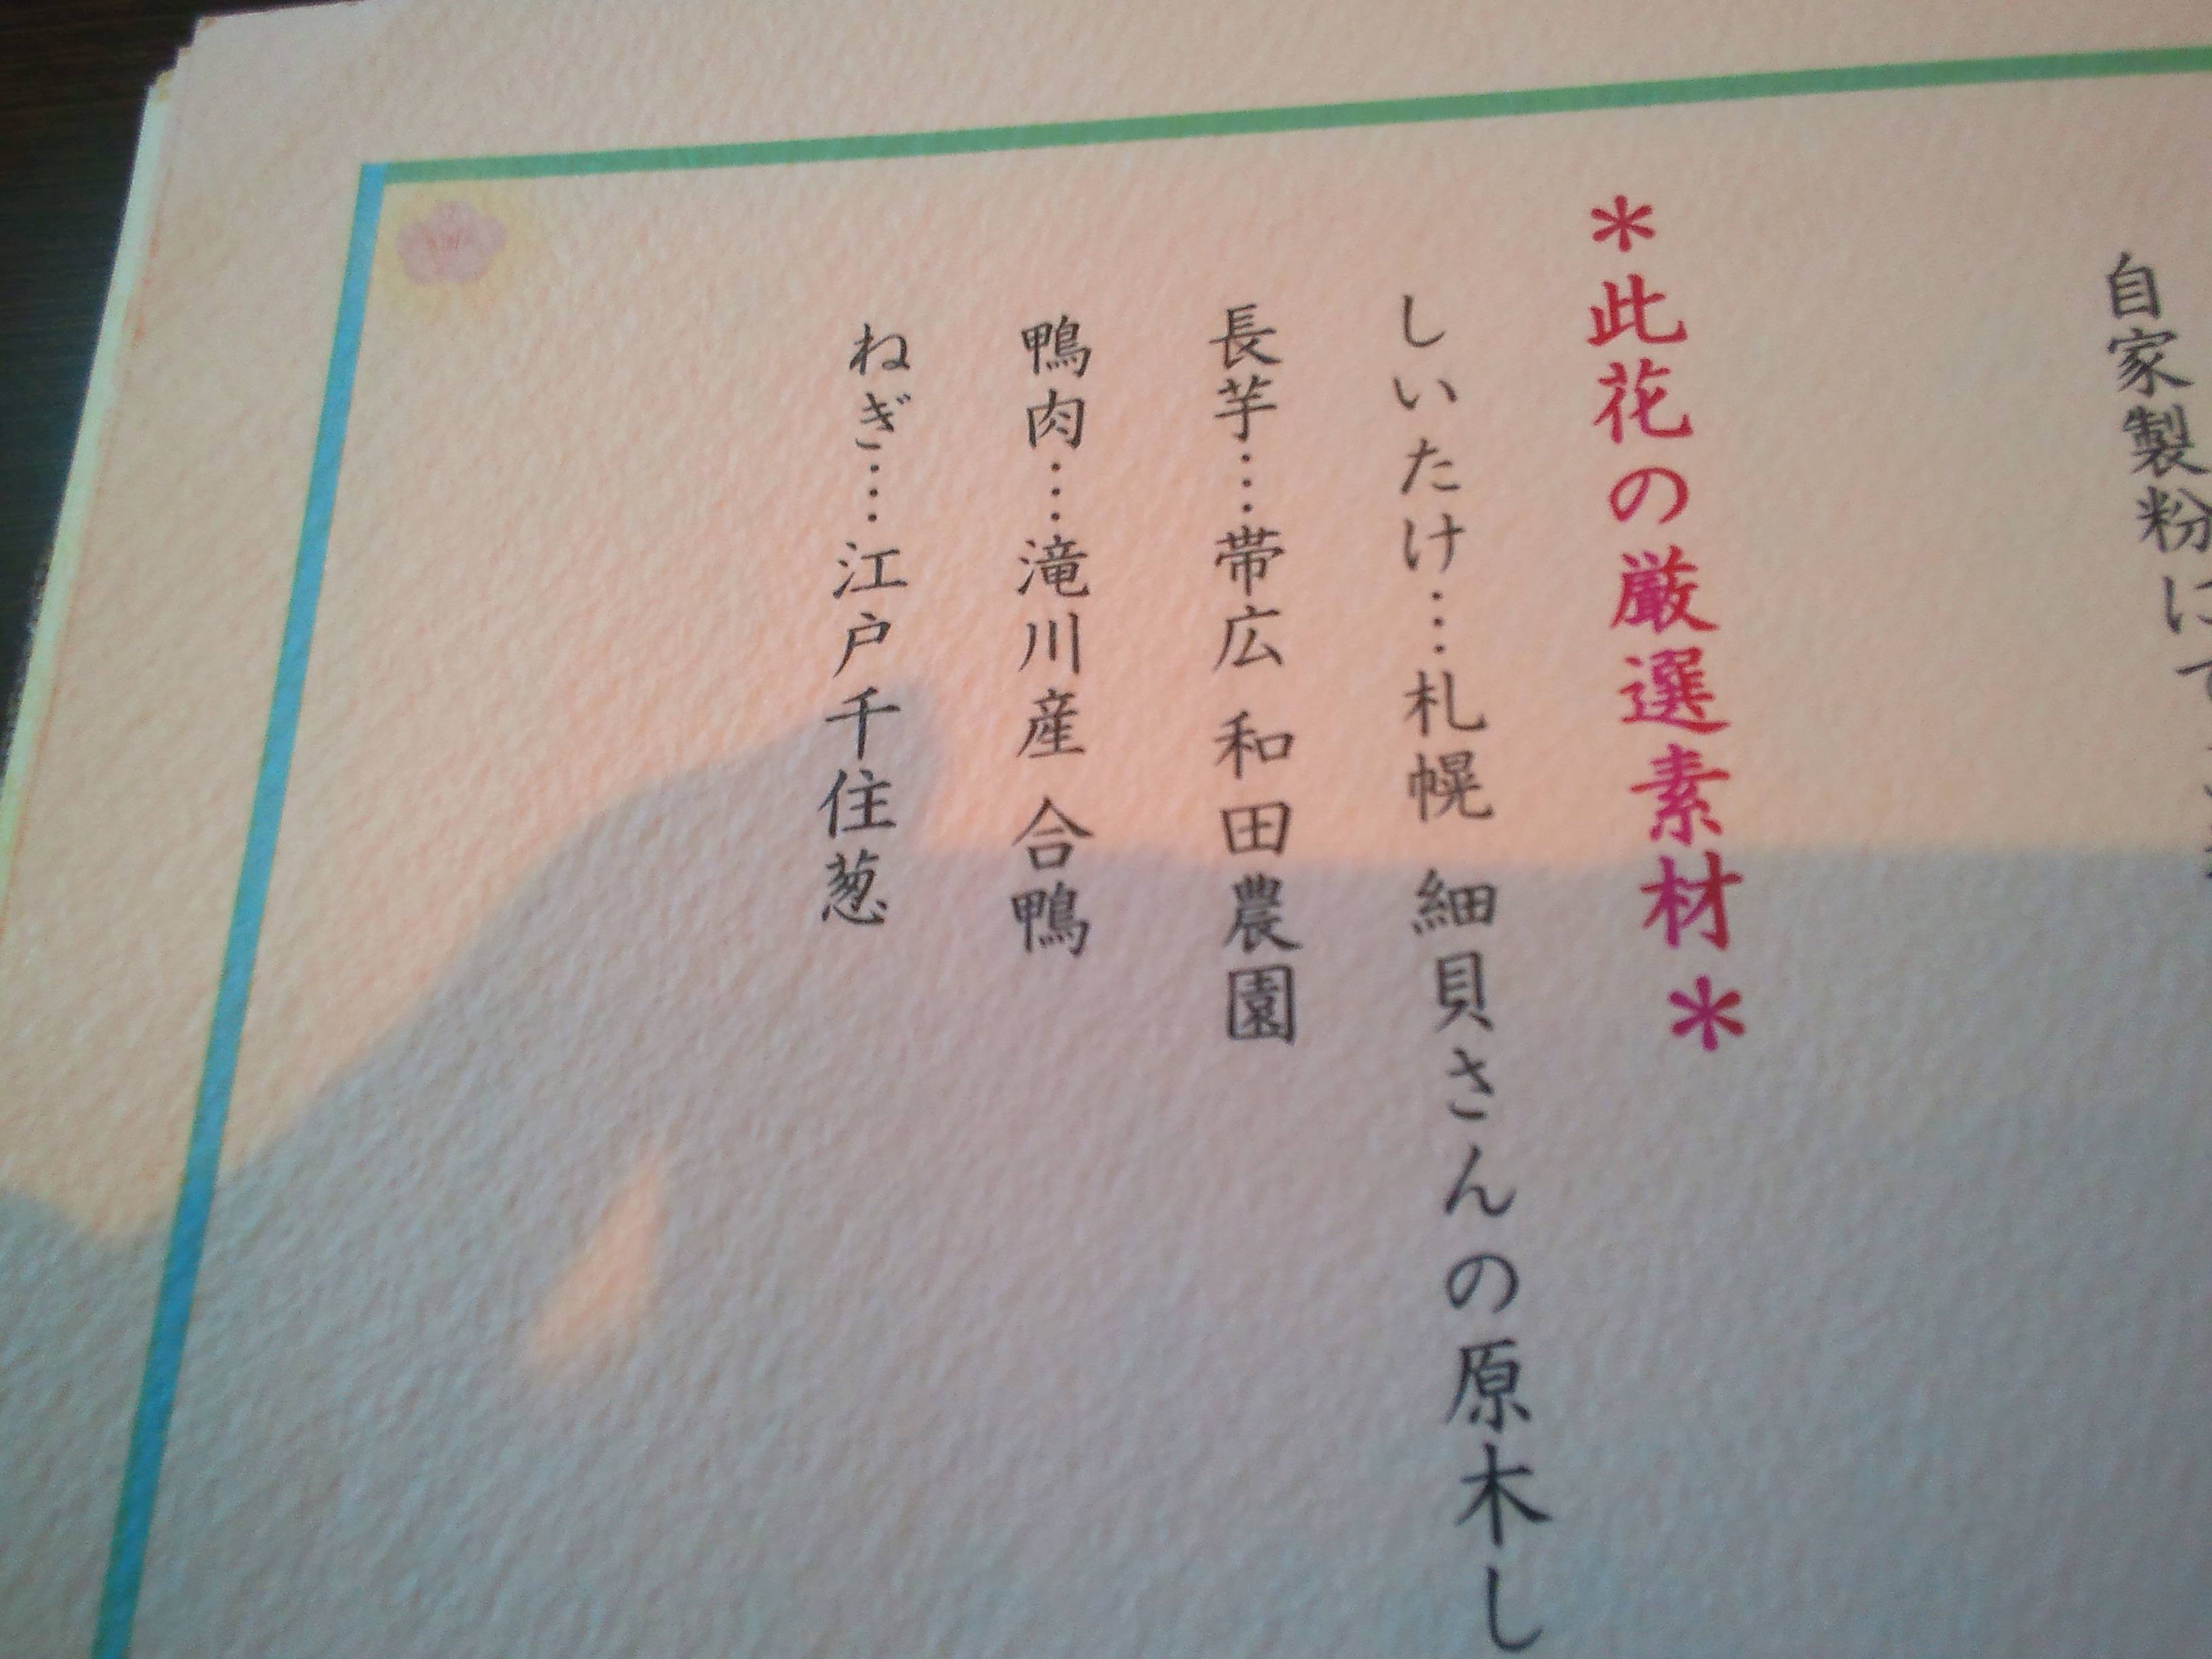 自家製粉に
＊此花の厳選素材＊
しいたけ……札幌 細貝さんの原木し
長芋……帯広 和田農園
鴨肉……滝川産 合鴨
ねぎ……江戸千住葱